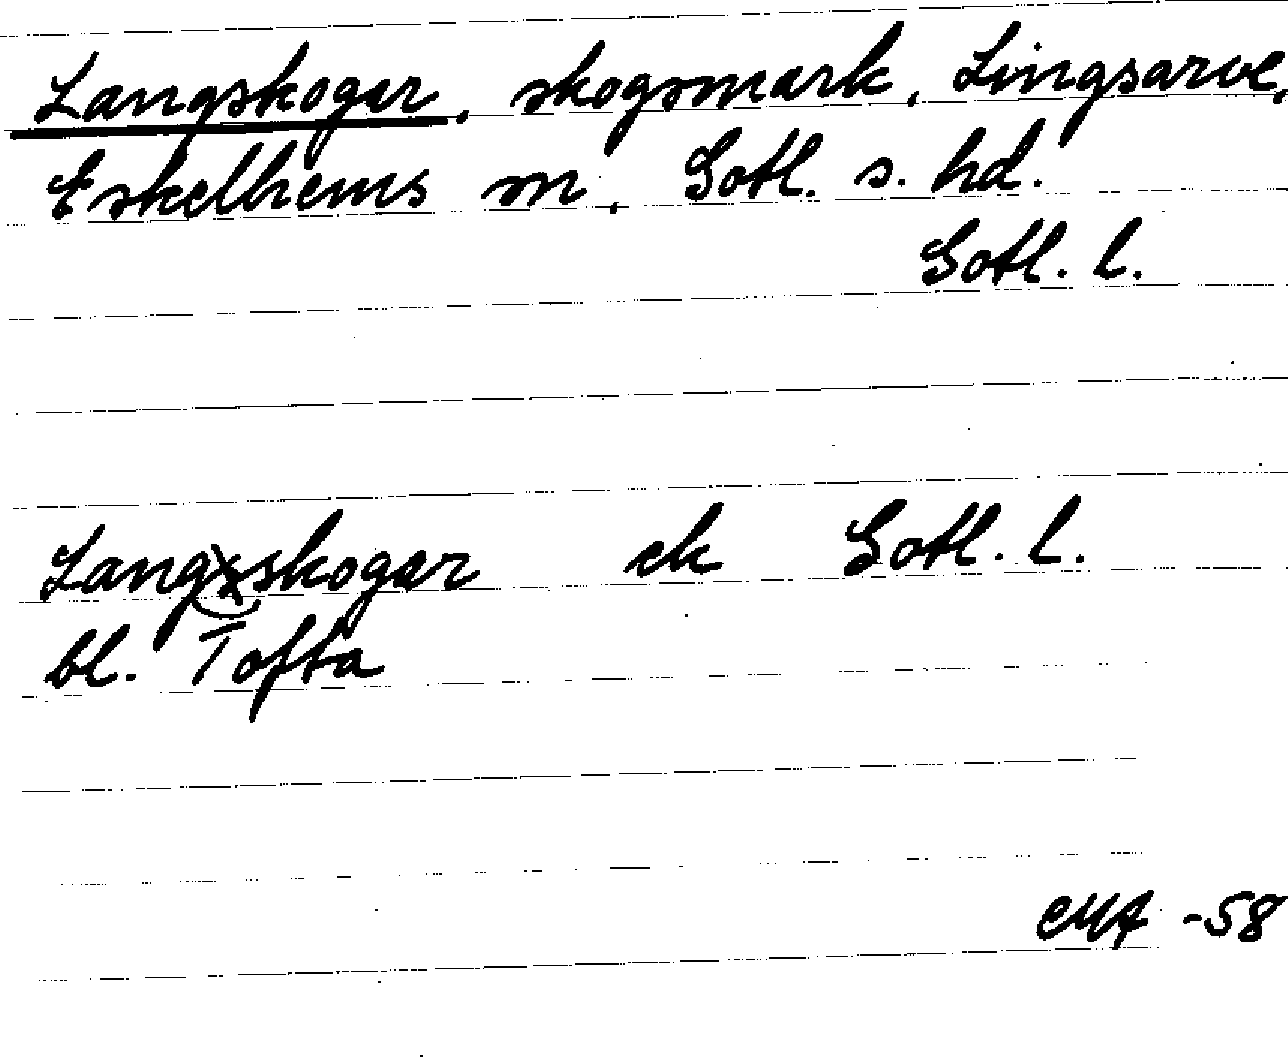 Langskogar, skogsmark, Lingsarve,
Eskelhems sn, Gotl. s. hd.
Gotl. l.
Langskogar ek Gotl. l.
bl. Tofta
CMA -58